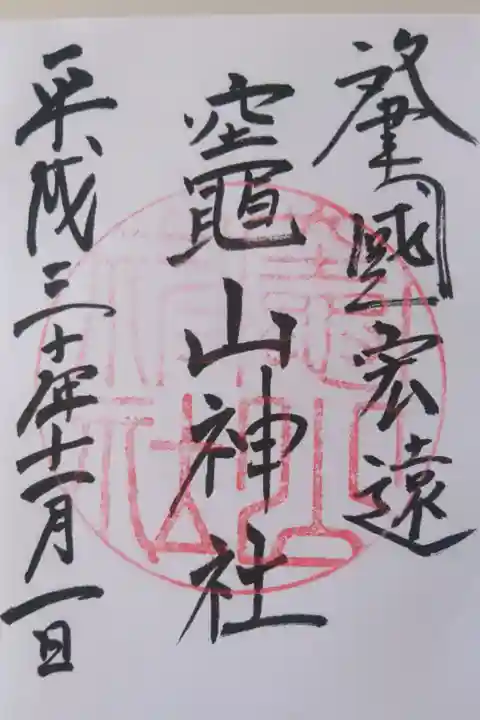 肇國宏遠
竈山神社
平成三十年十一月一日